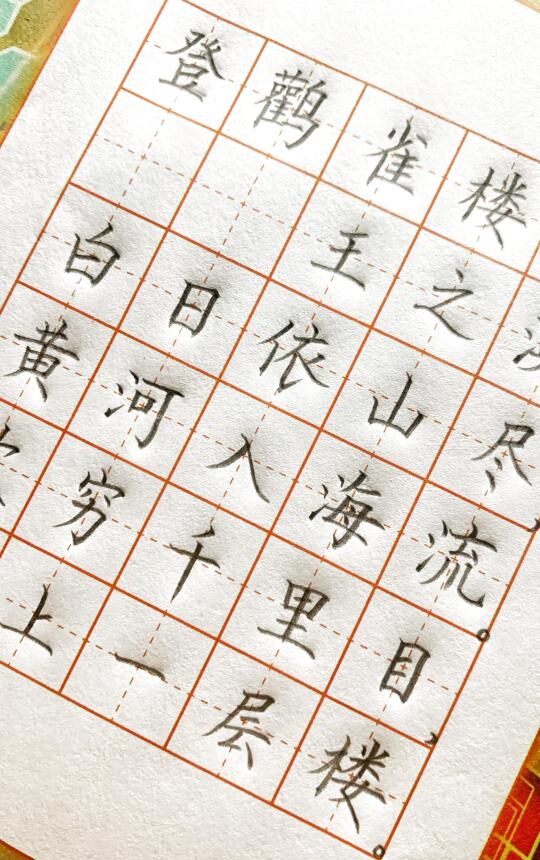 登鹳雀楼
王之
白日依山尽，
黄河入海流。
穷千里目，
上一层楼。